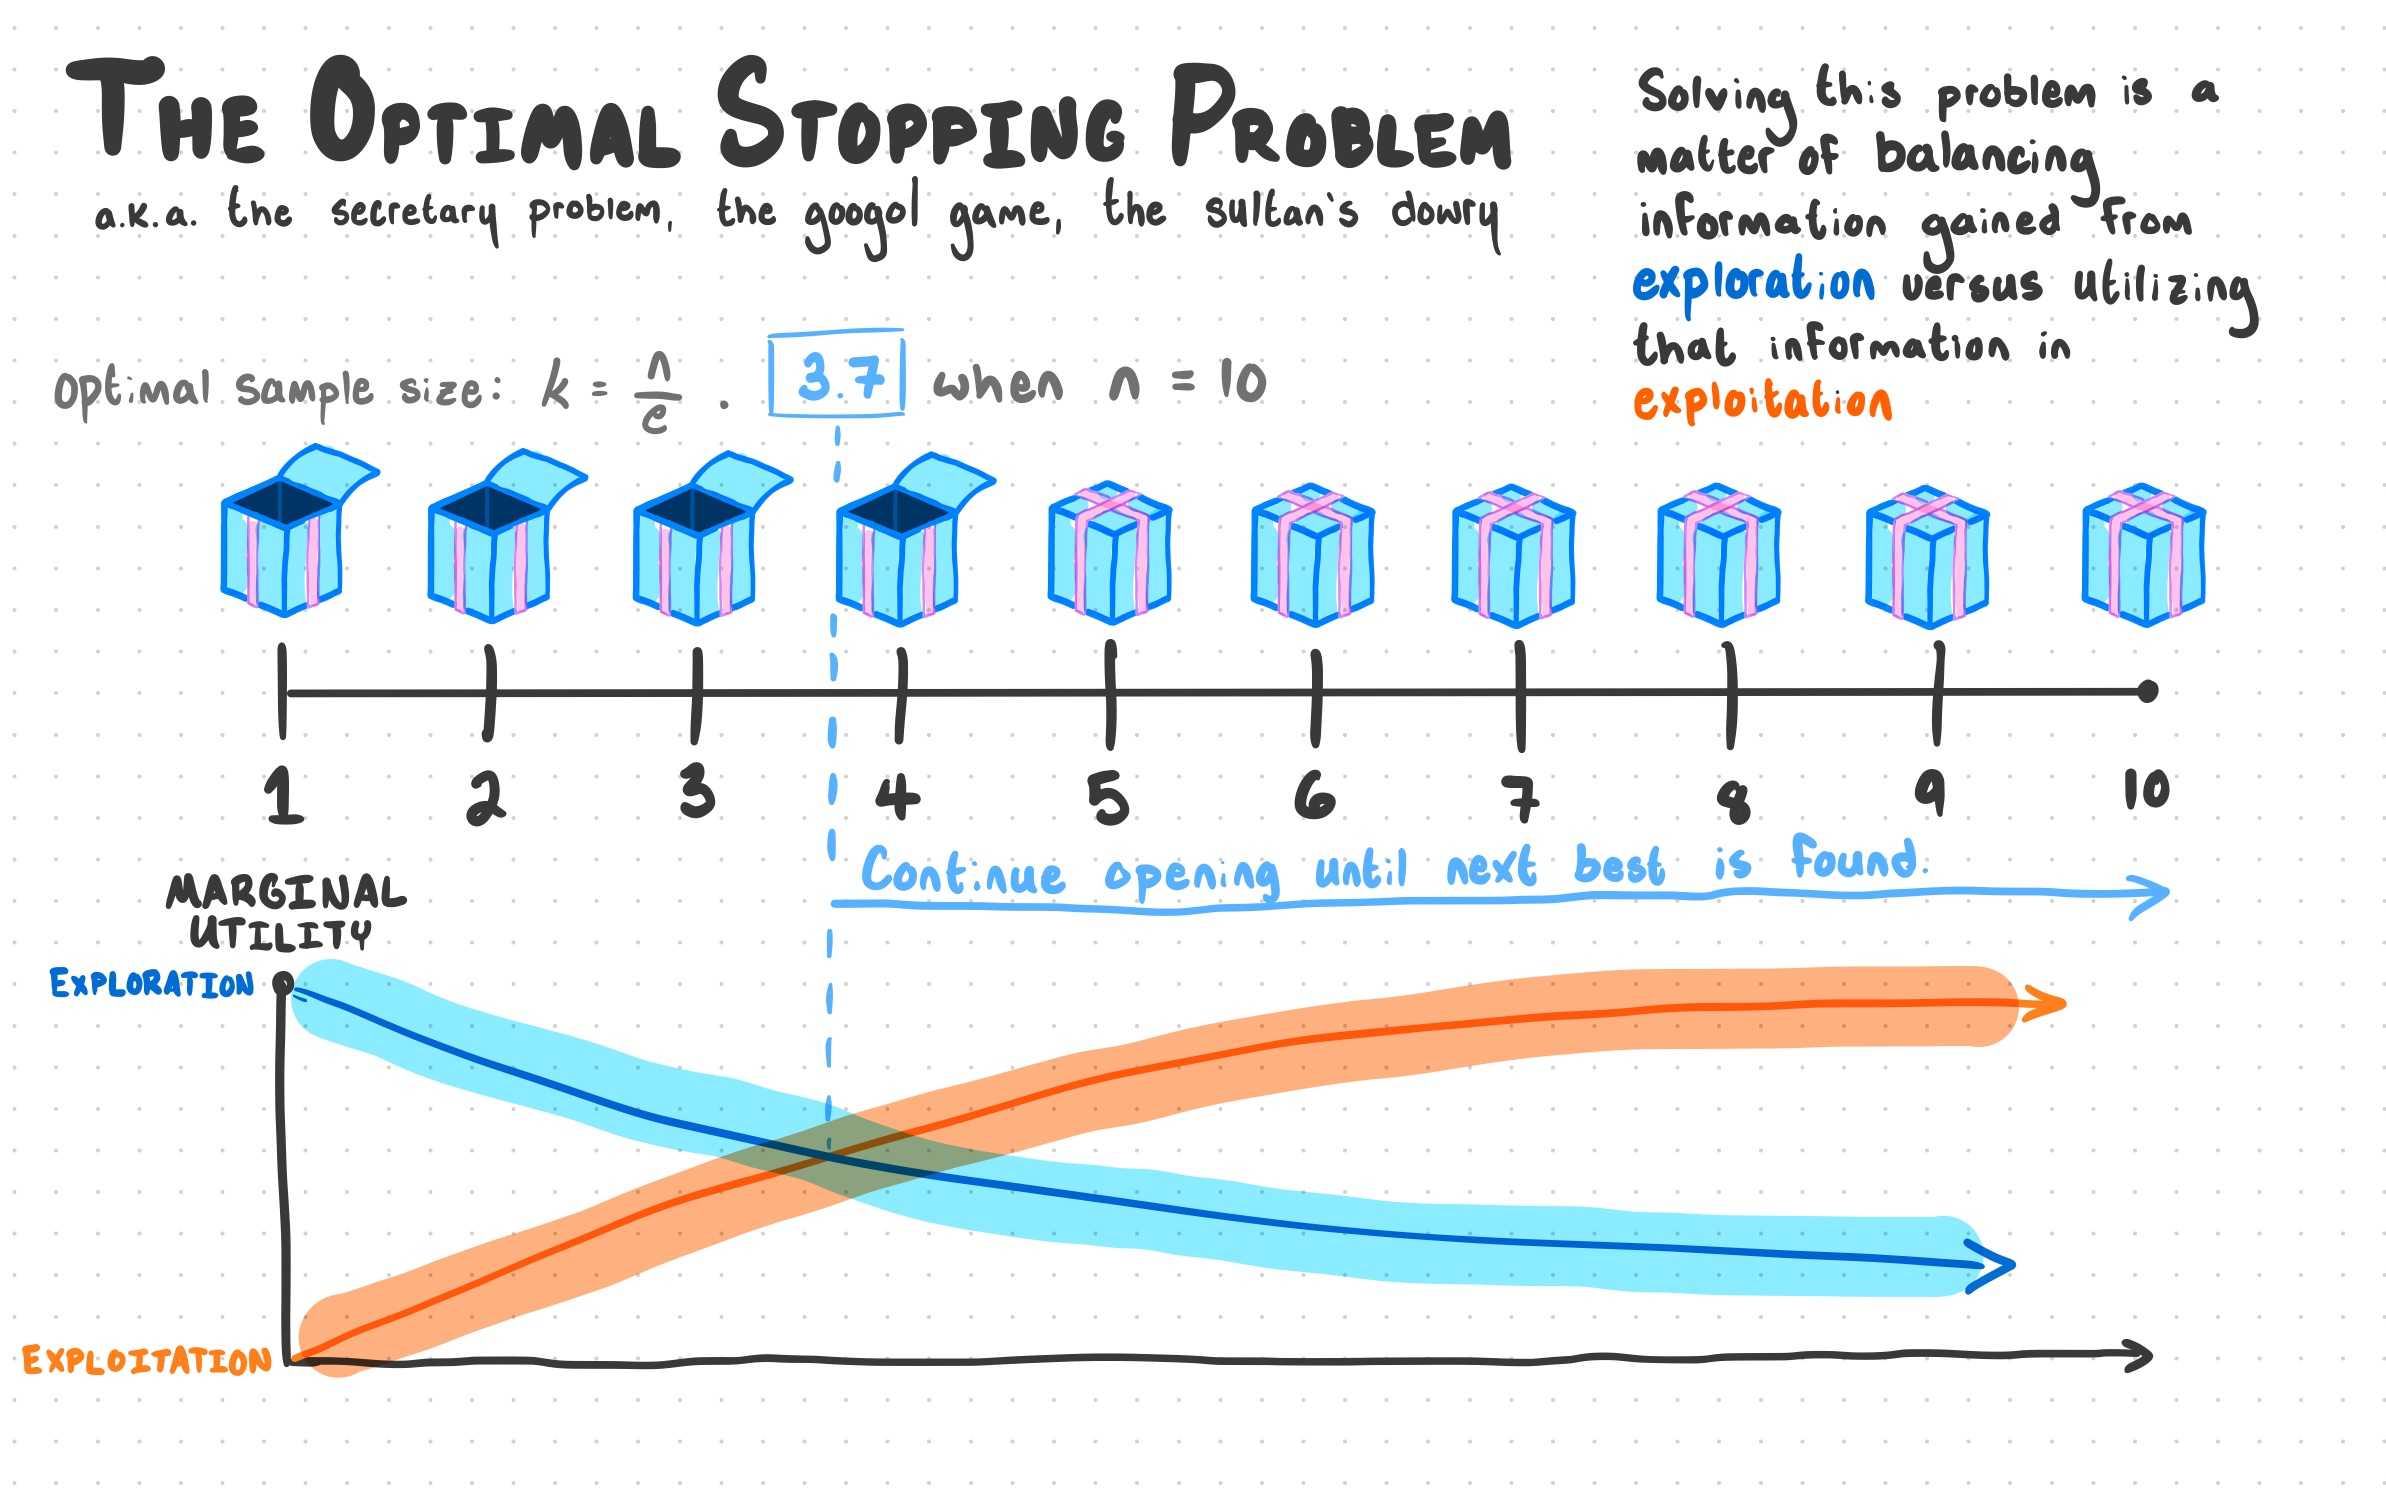 THE OPTIMAL STOPPING PROBLEM
a.k.a. the secretary problem, the googol game, the sultan's dowry
Solving this problem is a
matter of balancing
information gained from
exploration versus utilizing
that information in
exploitation
optimal sample size: k = n/e . 3.7 when n = 10
1 2 3 4 5 6 7 8 9 10
Continue opening until next best is found.
MARGINAL
UTILITY
EXPLORATION
EXPLOITATION